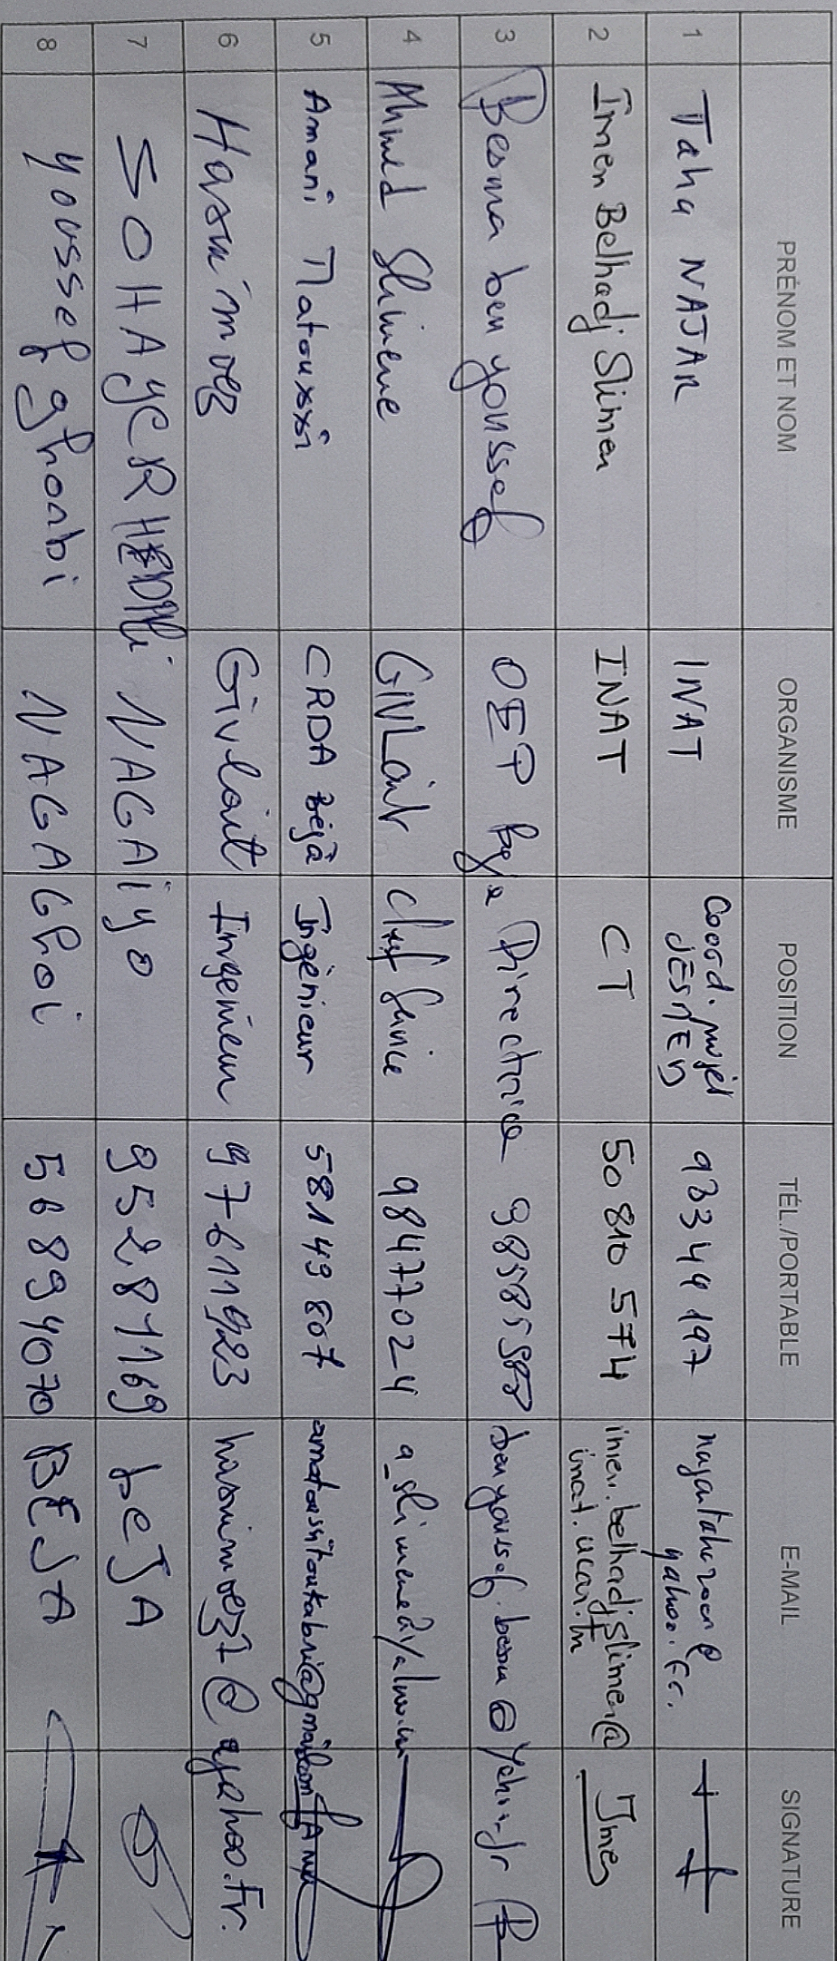 PRÉNOM ET NOM ORGANISME POSITION TÉL./PORTABLE E-MAIL SIGNATURE
1 Taha NAJAR INAT Coord. projet 93344197
yahoo.fr.
2 Imen Belhadj Slimen INAT CT 50 810 574 imen.belhadjslimen@ Imen
inat.ucar.tn
3 Besma ben youssef OEP Beja Directrice benyoussef.besma@yahoo.fr
4 Ahmed Slimene GIVLait chef service 98477024
5 Amani Matoussi CRDA Béja Ingénieur 58149807
6 Hasni moez Givlait Ingenieur 97611923 hasnimoez7@yahoo.fr.
7 SOHAYCRHEDHLi NAGAiyo 95287169 beJA
8 youssef ghorbi NAGAGhoi 56894070 BEJA